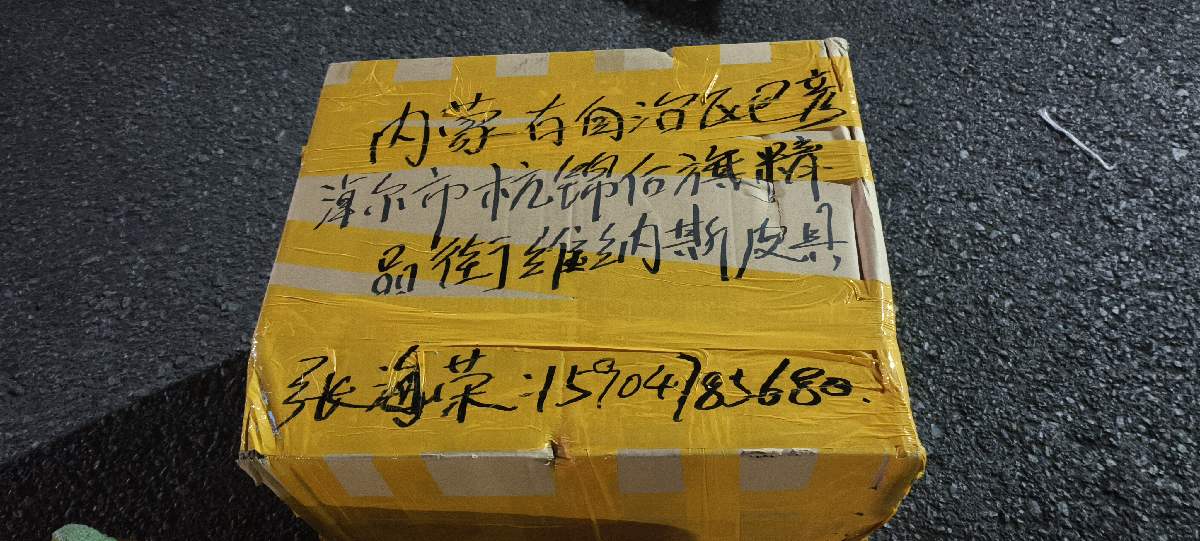 内蒙古自治区巴彦
淖尔市杭锦后旗精
品街维纳斯皮具
张海荣:15904785680.